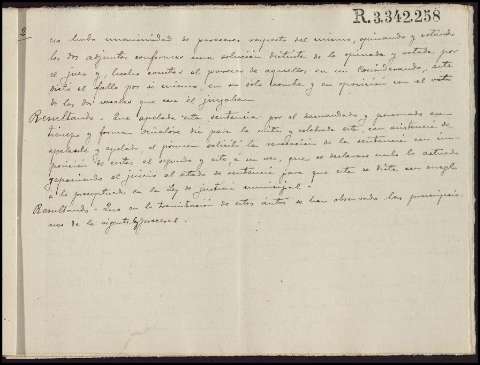 R.3.342.258
no hubo unanimidad de pareceres respecto del mismo, opinando y votando
los dos adjuntos conformes una solución distinta de la opinada y votada por
el juez y, hecho constar el parecer de aquellos en un Considerando, este
dictó el fallo por sí mismo, en su solo nombre y en oposición con el voto
de los dos vocales que con él juzgaban.
Resultando - Que apelada esta sentencia por el demandado y personado en
tiempo y forma señalose día para la vista y celebrada esta, con asistencia de
apelante y apelado, el primero solicitó la revocación de la sentencia con im-
posición de costas, el segundo y este a su vez, que se declarase nulo lo actuado
reponiendo el juicio al estado de sentencia para que esta se dicte con arreglo
a lo preceptuado en la Ley de justicia municipal.
Resultando - Que en la tramitación de estos autos se han observado las prescripcio-
nes de la vigente Ley procesal.